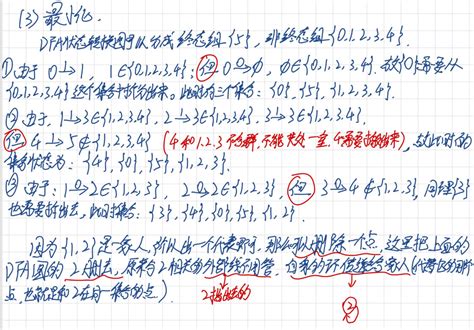 (3) 最小化.
DFA状态转换图可以分成终态组{5}, 非终态组{0,1,2,3,4}.
①由于 0→1, 1∈{0,1,2,3,4}; 但 0→∅, ∅∉{0,1,2,3,4}. 故0需要从
{0,1,2,3,4}这个集合中拆分出来. 此时有三个集合: {0}, {5}, {1,2,3,4}.
②由于, 1→3∈{1,2,3,4}, 2→3∈{1,2,3,4}, 3→3∈{1,2,3,4}.
但 4→5∉{1,2,3,4} (4和1,2,3不, 4需要拆出来), 故此时的
集合状态为: {4}, {0}, {5}, {1,2,3}.
③由于: 1→2∈{1,2,3}, 2→2∈{1,2,3}, 但 3→4∉{1,2,3}, 同理{3}
也需要拆出去, 此时集合: {3}, {4}, {0}, {5}, {1,2}.
因为{1,2}是一家人, 所以出一个代表即可. 那么可以删除一个点. 这里把上面的
DFA图的2删去, 原来与2相关的线不用管, 的给家人(代替它的那个
点, 也就是和2在同一集合的点)
2指出的
②